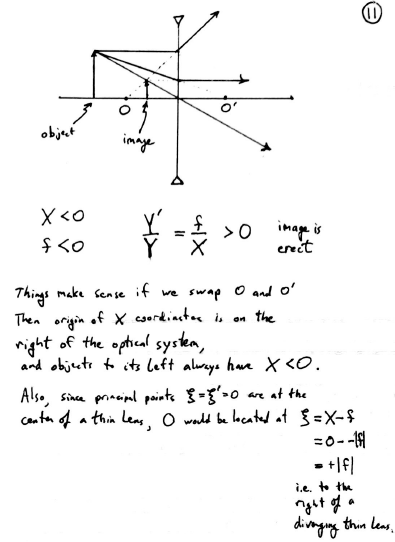 11
O
O'
object
image
X < 0
f < 0
Y'/Y = f/X > 0
image is
erect
Things make sense if we swap O and O'
Then origin of X coordinates is on the
right of the optical system,
and objects to its left always have X < 0.
Also, since principal points ξ = ξ' = 0 are at the
center of a thin lens, O would be located at ξ = X - f
= 0 - -|f|
= +|f|
i.e. to the
right of a
diverging thin lens.